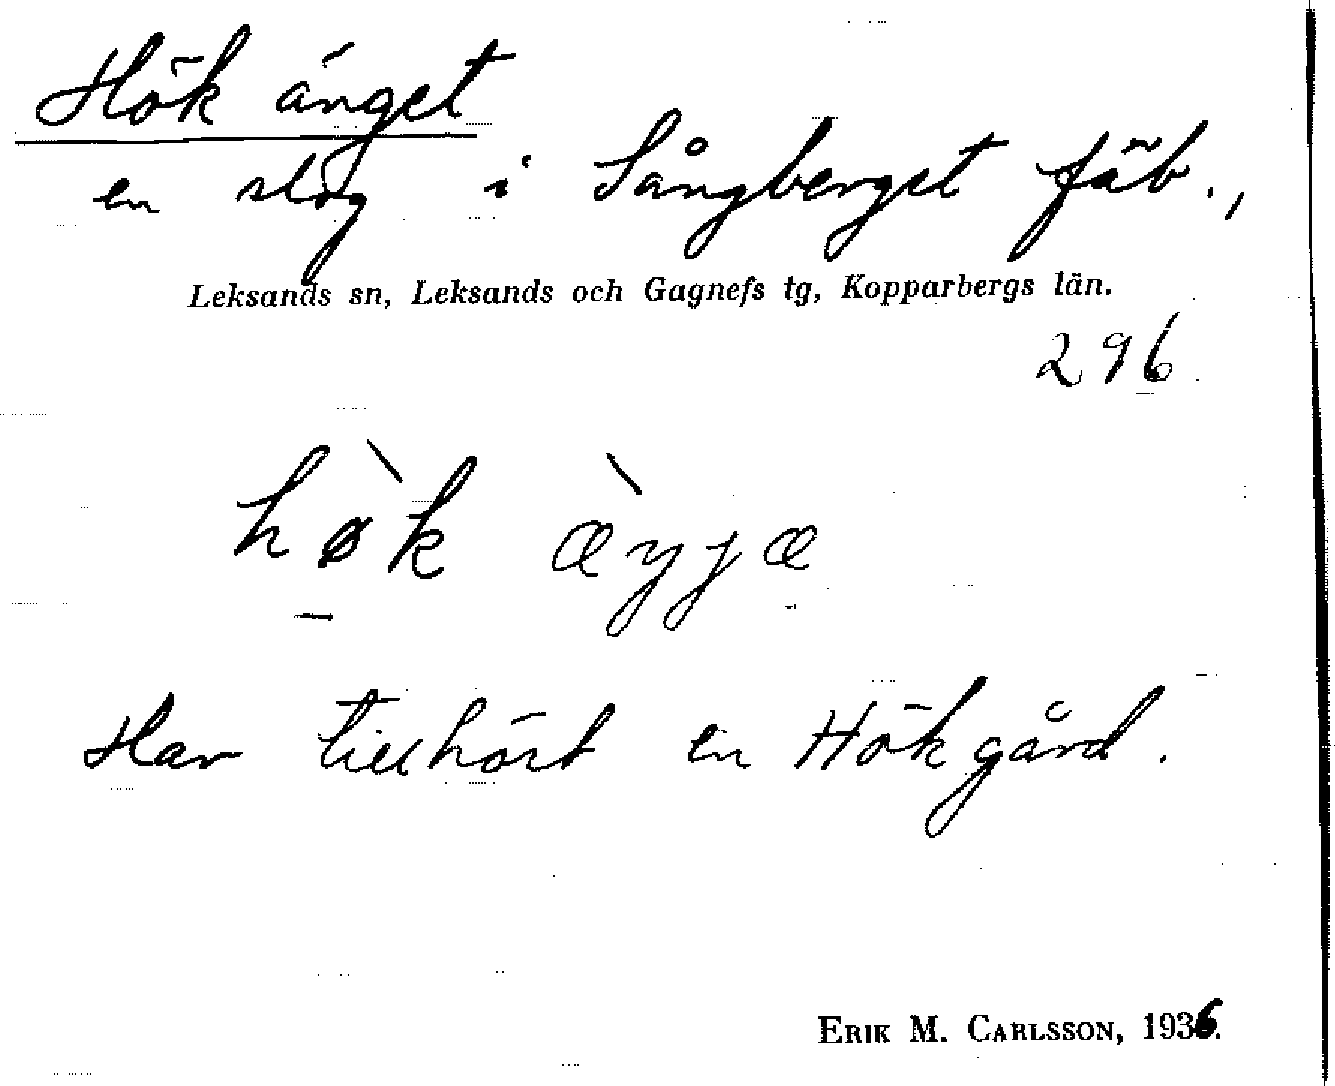 Hök änget
en slog i Sångberget fäb.,
Leksands sn, Leksands och Gagnefs tg, Kopparbergs län.
296
hø̀k æ̀ŋjæ
Har tillhört en Hökgård.
ERIK M. CARLSSON, 1936.